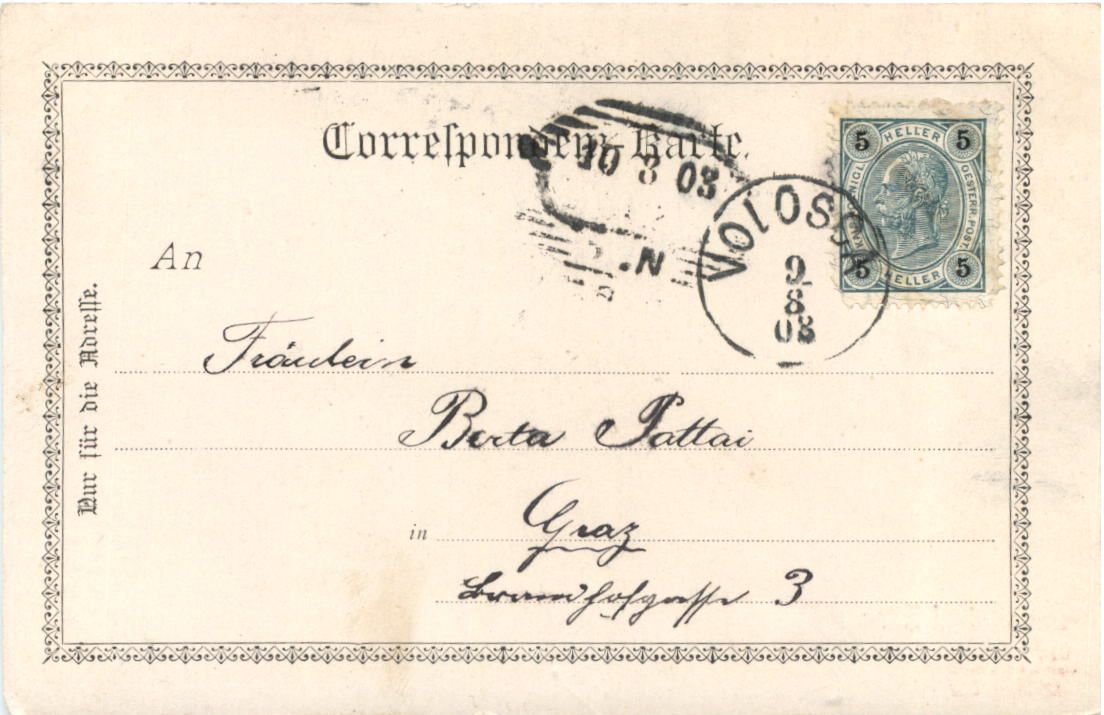 Correspondenz-Karte.
10 8 03
N.
VOLOSCA
9
8
03
5 HELLER 5
KAIS. KÖNIGL. OESTERR. POST.
5 HELLER 5
An
Nur für die Adresse.
Fräulein
Berta Pattai
in Graz
Brandhofgasse 3